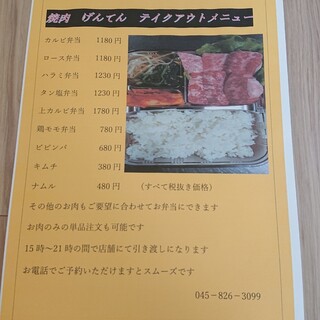 焼肉 げんてん テイクアウトメニュー
カルビ弁当 1180円
ロース弁当 1180円
ハラミ弁当 1230円
タン塩弁当 1230円
上カルビ弁当 1780円
鶏モモ弁当 780円
ビビンバ 680円
キムチ 380円
ナムル 480円 (すべて税抜き価格)
その他のお肉もご要望に合わせてお弁当にできます
お肉のみの単品注文も可能です
15時~21時の間で店舗にて引き渡しになります
お電話でご予約いただけますとスムーズです
045-826-3099